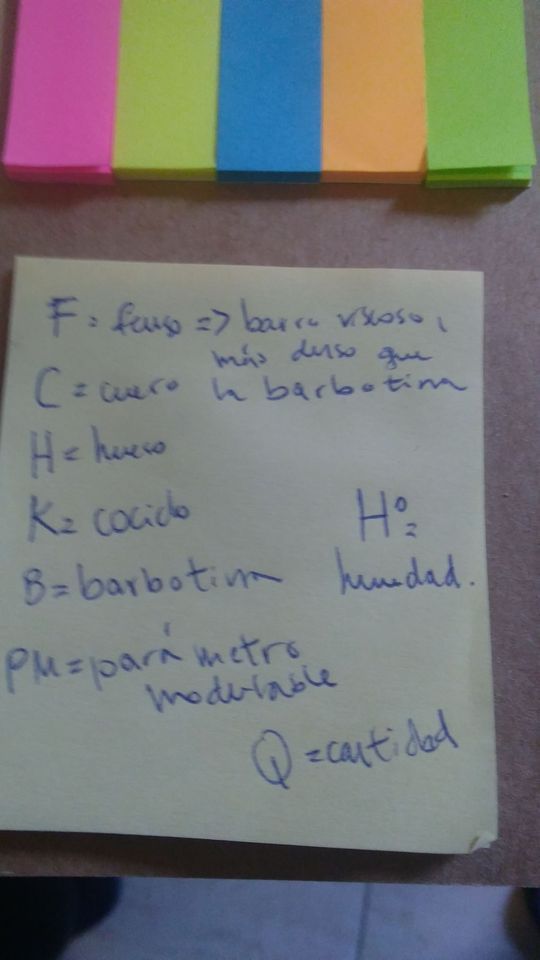 F = fango => barro viscoso,
más denso que
C = cuero la barbotina
H = hueso
K = cocido
Hº =
B = barbotina humedad.
PM = parámetro
modulable
Q = cantidad